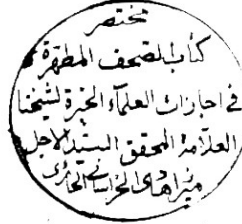 مختصر
كتاب الصحف المطهرة
في اجازات العلماء الخيرة لشيخنا
العلامة المحقق السيد الاجل
ميرزا هادي الخراساني الحائري